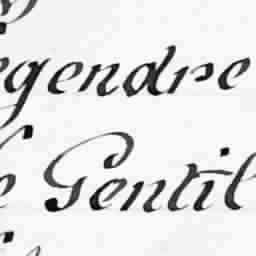 egendre
e Gentil